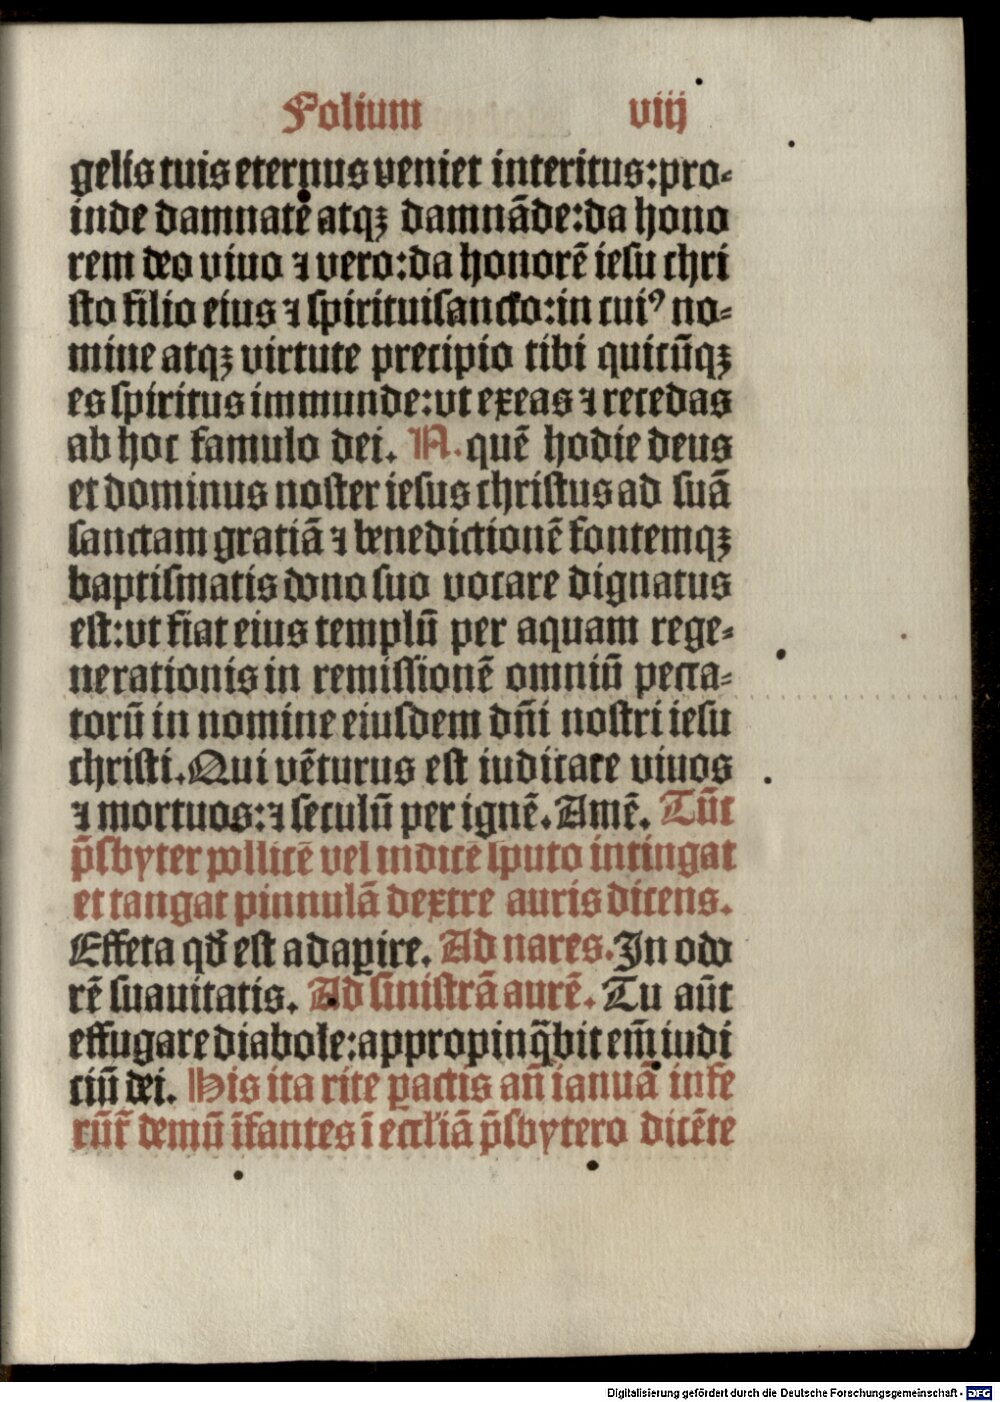 Folium viij
gelis tuis eternus veniet interitus:pro-
inde damnate atqꝫ damnãde:da hono
rem deo viuo ⁊ vero:da honorẽ iesu chri
sto filio eius ⁊ spirituisancto:in cuiꝰ no-
mine atqꝫ virtute precipio tibi quicũqꝫ
es spiritus immunde:vt exeas ⁊ recedas
ab hoc famulo dei. N. quẽ hodie deus
et dominus noster iesus christus ad suã
sanctam gratiã ⁊ benedictionẽ fontemqꝫ
baptismatis dono suo vocare dignatus
est:vt fiat eius templũ per aquam rege-
nerationis in remissionẽ omniũ pecca-
torũ in nomine eiusdem dñi nostri iesu
christi. Qui vẽturus est iudicare viuos
⁊ mortuos:⁊ seculũ per ignẽ. Amẽ. Tũc
p̃sbyter pollicẽ vel indicẽ sputo intingat
et tangat pinnulã dextre auris dicens.
Effeta qđ est adapire. Ad nares. In odo
rẽ suauitatis. Ad sinistrã aurẽ. Tu aũt
effugare diabole:appropinq̃bit em̃ iudi
ciũ dei. His ita rite ꝑactis añ ianuã infe
rũt᷑ demũ ĩfantes ĩ eccl'iã p̃sbytero dicẽte
Digitalisierung gefördert durch die Deutsche Forschungsgemeinschaft - DFG